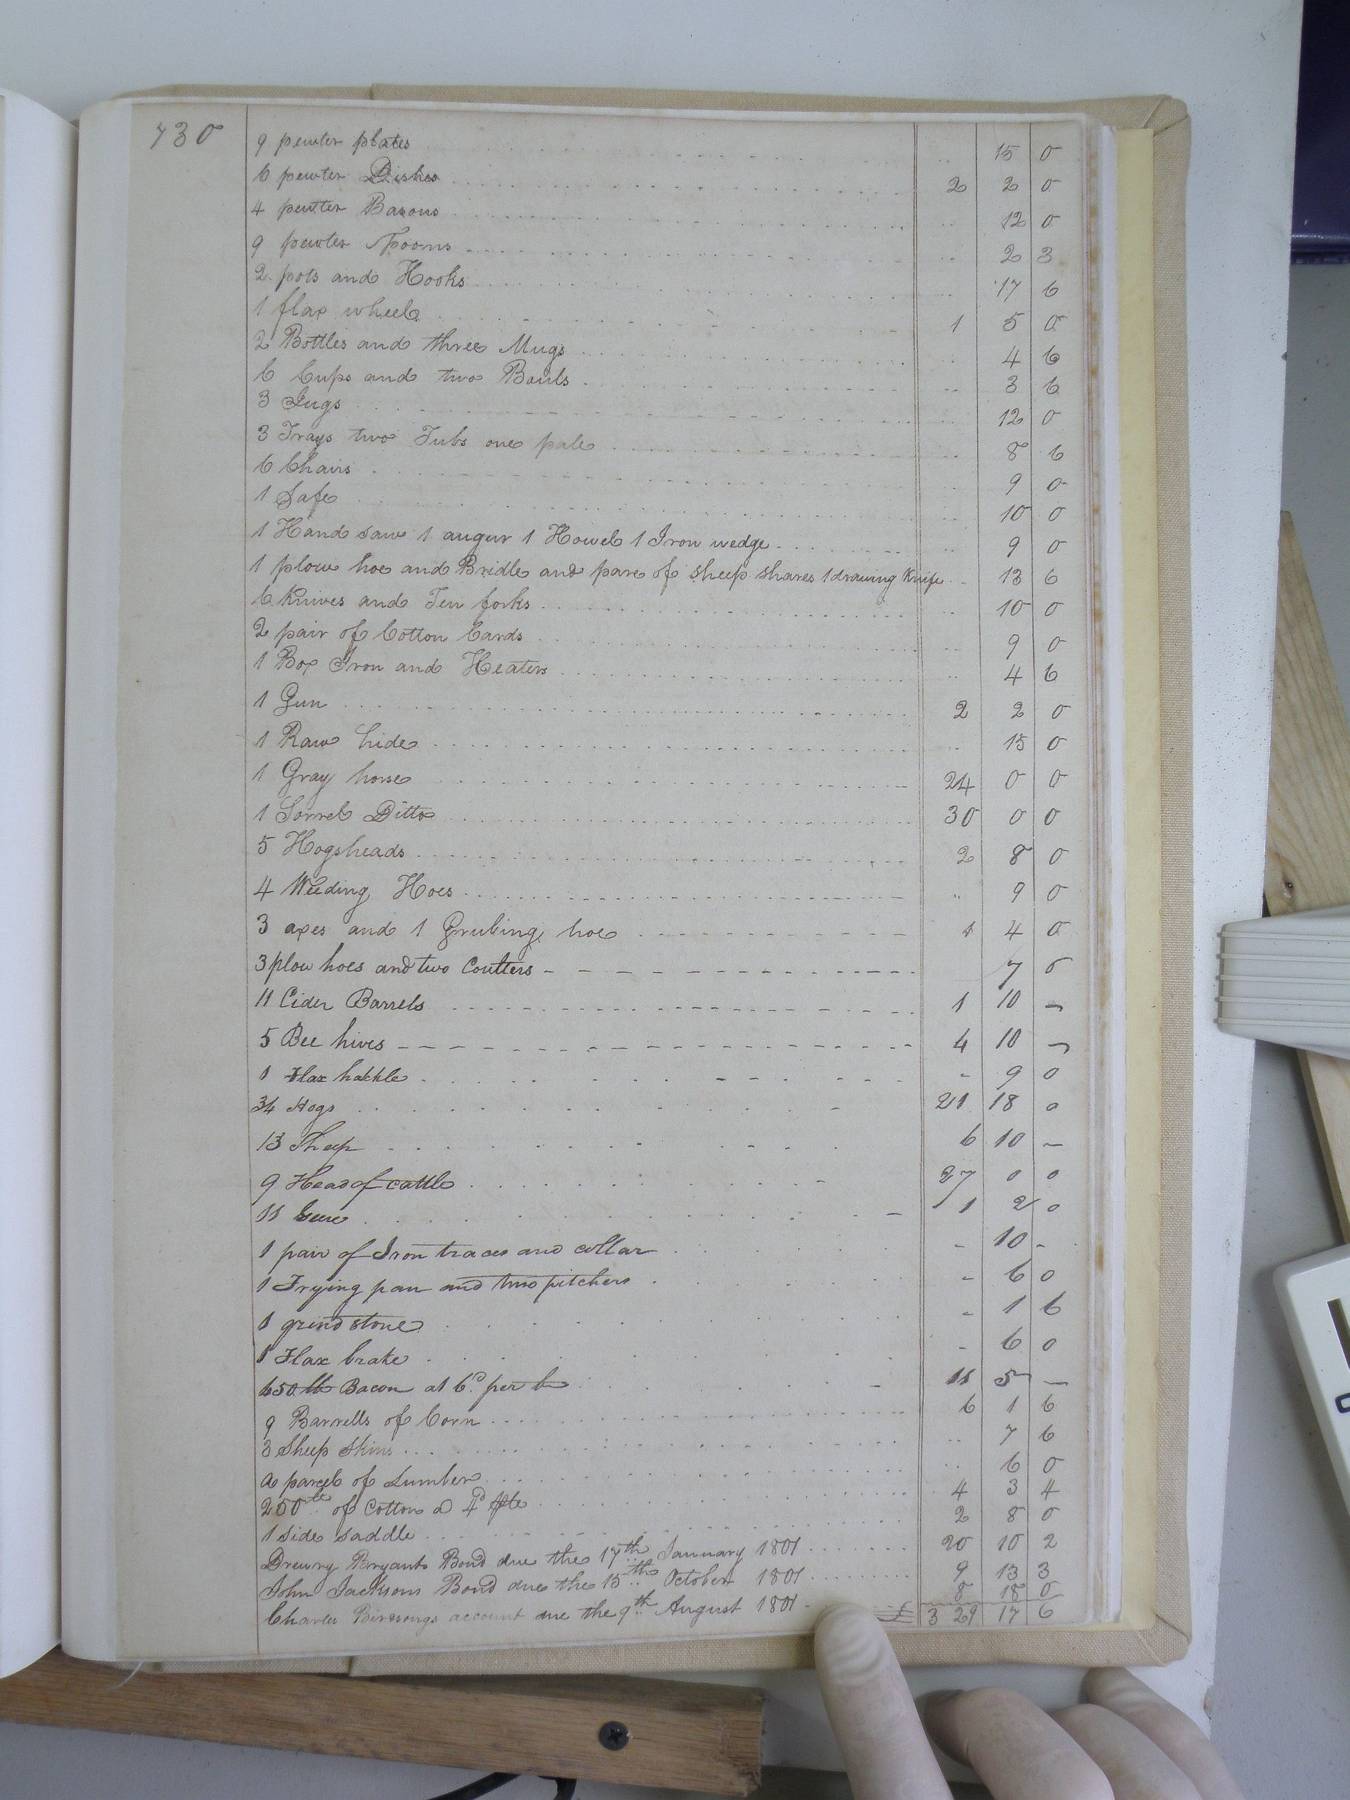 730
9 pewter plates 15 0
6 pewter Dishes 2 2 0
4 pewter Basons 12 0
9 pewter Spoons 2 3
2 pots and Hooks 17 6
1 flax wheel 1 5 0
2 Bottles and three Mugs 4 6
6 Cups and two Bowls 3 6
3 Jugs 12 0
3 Trays two Tubs one pale 8 6
6 Chairs 9 0
1 Safe 10 0
1 Hand saw 1 augur 1 Howel 1 Iron wedge 9 0
1 plow hoe and Bridle and pare of sheep shares 1 drawing Knife 13 6
6 Knives and Ten forks 10 0
2 pair of Cotton Cards 9 0
1 Box Iron and Heaters 4 6
1 Gun 2 2 0
1 Raw hide 15 0
1 Gray horse 24 0 0
1 Sorrel Ditto 30 0 0
5 Hogsheads 2 8 0
4 Weeding Hoes 9 0
3 axes and 1 Grubing hoe 1 4 0
3 plow hoes and two Coulters 7 6
11 Cider Barrels 1 10 -
5 Bee hives 4 10 -
1 Flax hakkle - 9 0
34 Hogs 21 18 0
13 Sheep 6 10 -
9 Head of cattle 27 0 0
11 Geese 1 2 0
1 pair of Iron traces and collar - 10 -
1 Frying pan and two pitchers - 6 0
1 grind stone - 1 6
1 Flax brake - 6 0
450 lb Bacon at 6d per lb 11 5 -
9 Barrells of Corn 6 1 6
3 Sheep Skins 7 6
a parcel of Lumber 6 0
250 lb of Cotton @ 4d 4 3 4
1 side saddle 2 8 0
Drewry Bryants Bond due the 17th January 1801 20 10 2
John Jacksons Bond due the 15th October 1801 9 13 3
Charles Birdsongs account due the 9th August 1801 8 18 0
£ 329 17 6